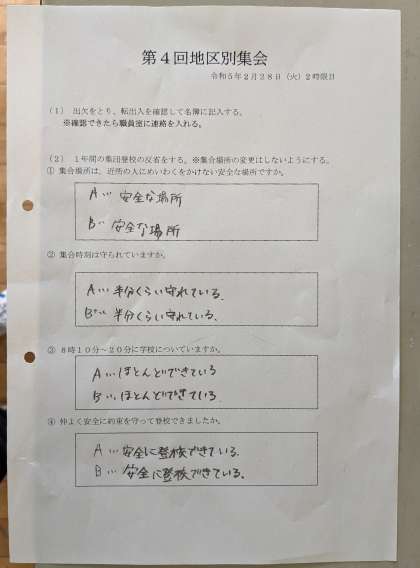 第４回地区別集会
令和５年２月２８日（火）２時限目
（１） 出欠をとり、転出入を確認して名簿に記入する。
※確認できたら職員室に連絡を入れる。
（２） １年間の集団登校の反省をする。※集合場所の変更はしないようにする。
① 集合場所は、近所の人にめいわくをかけない安全な場所ですか。
A… 安全な場所
B… 安全な場所
② 集合時刻は守られていますか。
A… 半分くらい守れている。
B… 半分くらい守れている。
③ ８時１０分～２０分に学校についていますか。
A… ほとんどできている
B… ほとんどできている
④ 仲よく安全に約束を守って登校できましたか。
A… 安全に登校できている。
B… 安全に登校できている。